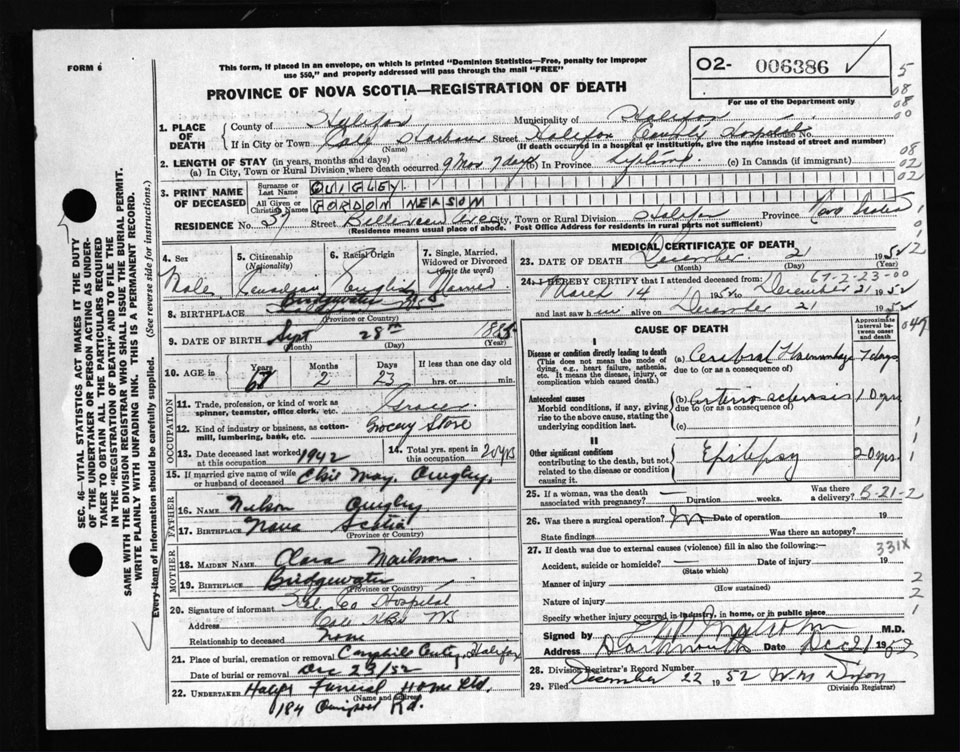 FORM 6
This form, if placed in an envelope, on which is printed "Dominion Statistics—Free, penalty for improper
use $50," and properly addressed will pass through the mail "FREE"
O2- 006386
For use of the Department only
5
08
08
00
PROVINCE OF NOVA SCOTIA—REGISTRATION OF DEATH
1. PLACE OF DEATH
County of Halifax Municipality of Halifax
If in City or Town Cole Harbour Street Halifax County Hospital No.
(Name) (If death occurred in a hospital or institution, give the name instead of street and number)
2. LENGTH OF STAY (in years, months and days)
(a) In City, Town or Rural Division where death occurred 9 Mos 7 days (b) In Province Lifetime (c) In Canada (if immigrant)
08
02
02
3. PRINT NAME OF DECEASED
Surname or Last Name QUIGLEY
All Given or Christian Names GORDON NELSON
RESIDENCE No. 37 Street Ave City, Town or Rural Division Halifax Province Nova Scotia
(Residence means usual place of abode. Post Office Address for residents in rural parts not sufficient)
4. Sex
Male
5. Citizenship
(Nationality)
Canadian
6. Racial Origin
English
7. Single, Married,
Widowed or Divorced
(write the word)
8. BIRTHPLACE Bridgewater N.S
(Province or Country)
9. DATE OF BIRTH Sept 28th 1885
(Month) (Day) (Year)
10. AGE is Years Months Days If less than one day old
67 2 23 hrs. or min.
OCCUPATION
11. Trade, profession, or kind of work as
spinner, teamster, office clerk, etc. Grocer
12. Kind of industry or business, as cotton-
mill, lumbering, bank, etc. Grocery Store
13. Date deceased last worked at this occupation 1942
14. Total yrs. spent in this occupation 20 yrs
15. If married give name of wife or husband of deceased Elsie May Quigley
FATHER
16. NAME Nelson Quigley
17. BIRTHPLACE Nova Scotia
(Province or Country)
MOTHER
18. MAIDEN NAME Clara
19. BIRTHPLACE Bridgewater
(Province or Country)
20. Signature of informant Hfx. Co Hospital
Address Cole Hbr NS
Relationship to deceased None
21. Place of burial, cremation or removal Halifax
Date of burial or removal Dec 23/52
22. UNDERTAKER Halifx Funeral Home Ltd.
(Name and address)
184 Rd.
MEDICAL CERTIFICATE OF DEATH
23. DATE OF DEATH December 21 1952
(Month) (Day) (Year)
67-2-23-00
24. I HEREBY CERTIFY that I attended deceased from:
March 14 1952 to December 21 1952
and last saw him alive on December 21 1952
CAUSE OF DEATH
Approximate interval between onset and death
I
Disease or condition directly leading to death
(This does not mean the mode of
dying, e.g., heart failure, asthenia,
etc. It means the disease, injury, or
complication which caused death.)
(a) Cerebral Haemorrhage 7 days
due to (or as a consequence of)
Antecedent causes
Morbid conditions, if any, giving
rise to the above cause, stating the
underlying condition last.
(b) Arteriosclerosis 10 yrs
due to (or as a consequence of)
(c)
II
Other significant conditions
contributing to the death, but not
related to the disease or condition
causing it.
Epilepsy 20 yrs.
25. If a woman, was the death associated with pregnancy? — Duration weeks. Was there a delivery?
B-21-2
26. Was there a surgical operation? No Date of operation 19
State findings Was there an autopsy?
27. If death was due to external causes (violence) fill in also the following:—
331X
Accident, suicide or homicide? Date of injury 19
(State which)
Manner of injury
(How sustained)
Nature of injury
Specify whether injury occurred in industry, in home, or in public place
Signed by M.D.
Address Dartmouth Date Dec 21 1952
28. Division Registrar's Record Number
29. Filed December 22 1952 W.M
(Division Registrar)
SEC. 46—VITAL STATISTICS ACT MAKES IT THE DUTY
OF THE UNDERTAKER OR PERSON ACTING AS UNDER-
TAKER TO OBTAIN ALL THE PARTICULARS REQUIRED
IN THE "REGISTRATION OF DEATH" AND TO FILE THE
SAME WITH THE DIVISION REGISTRAR WHO SHALL ISSUE THE BURIAL PERMIT.
WRITE PLAINLY WITH UNFADING INK. THIS IS A PERMANENT RECORD.
Every item of information should be carefully supplied. (See reverse side for instructions.)